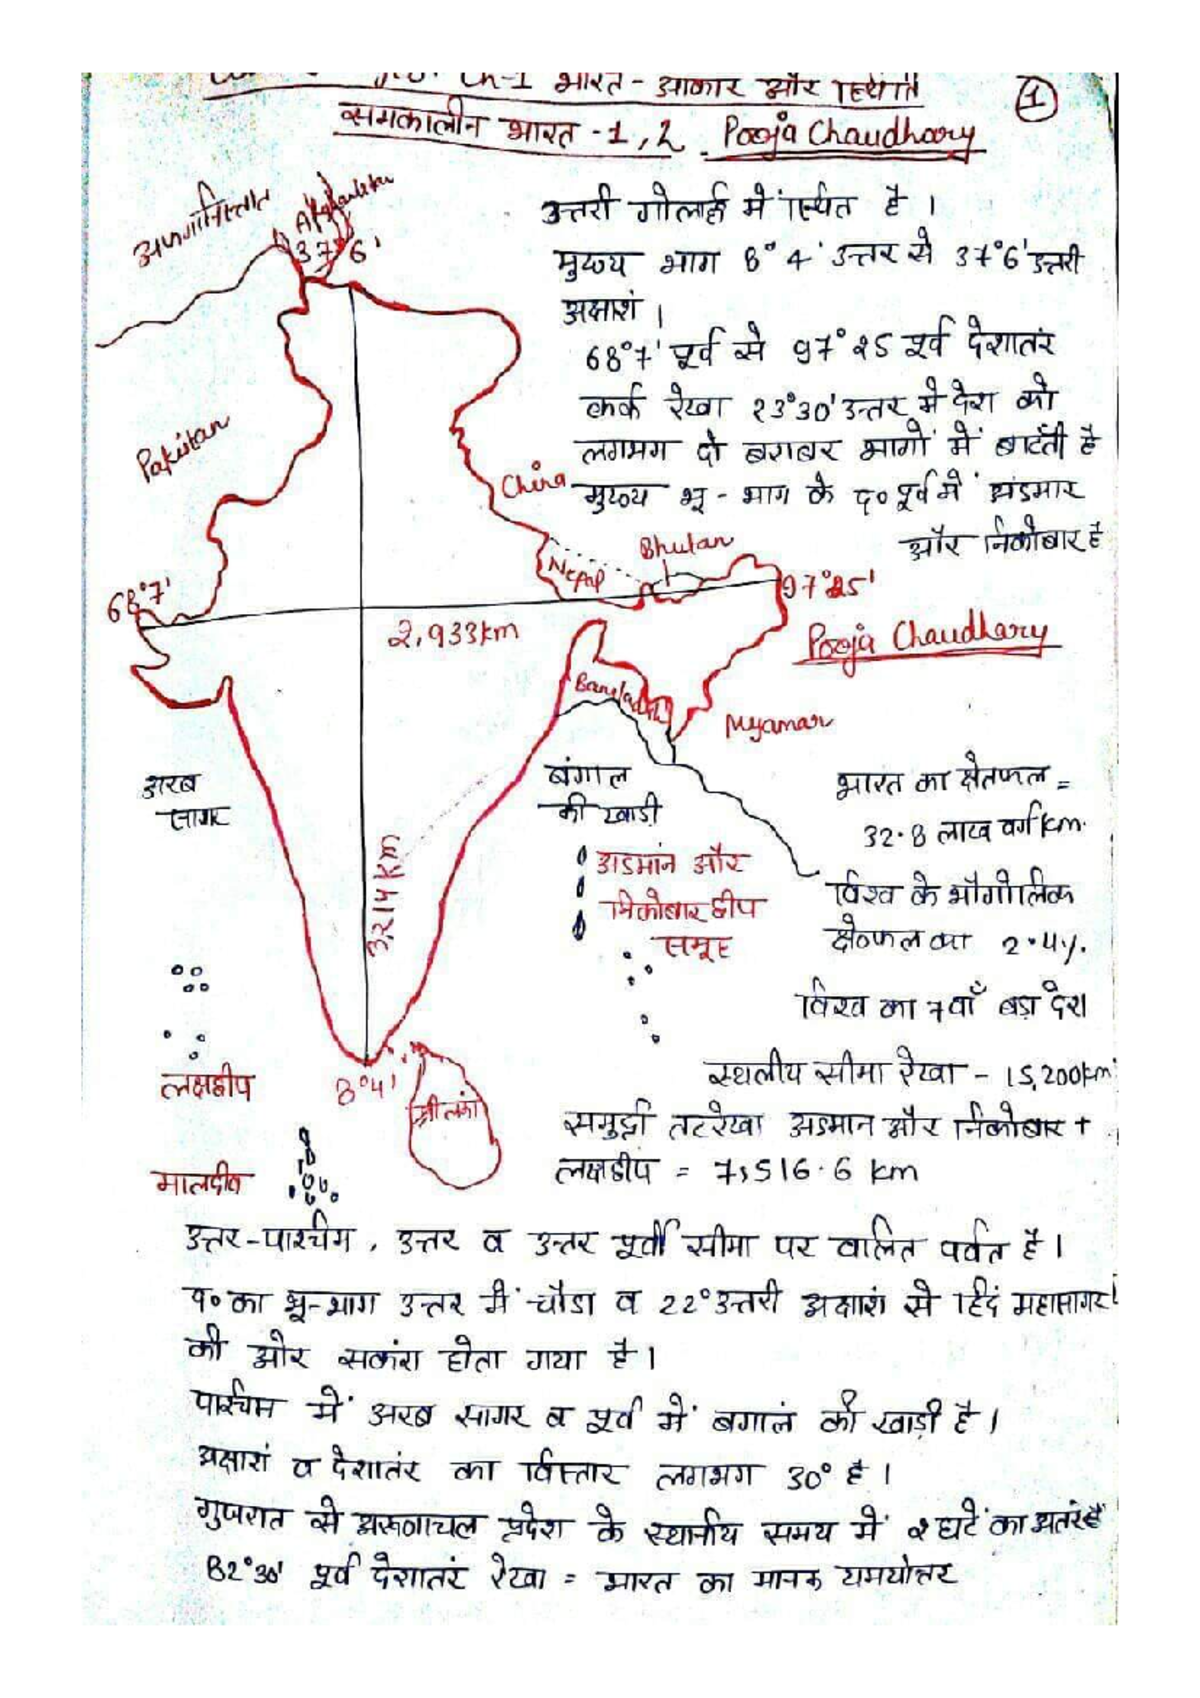 Ch-1 भारत - आकार और स्थिति
1
समकालीन भारत - 1, 2 Pooja Chaudhary
अफगानिस्तान
Afghanistan
37°6'
उत्तरी गोलार्द्ध में स्थित है ।
मुख्य भाग 8°4' उत्तर से 37°6' उत्तरी
अक्षाशं ।
68°7' पूर्व से 97°25 पूर्व देशातंर
कर्क रेखा 23°30' उत्तर में देश को
लगभग दो बराबर भागों में बाटँती है
मुख्य भू - भाग के द० पूर्व में अंडमार
और निकोबार है
Pakistan
China
Bhutan
Nepal
68°7'
97°25'
2,933km
Pooja Chaudhary
Bangladesh
Myamar
अरब
सागर
बंगाल
की खाड़ी
भारत का क्षेतफल =
32.8 लाख वर्ग km.
3,214 km
अडमांन और
निकोबार द्वीप
समूह
विश्व के भौगोलिक
क्षे०फल का 2.4%.
विश्व का 7वाँ बड़ा देश
लक्षद्वीप
8°4'
श्रीलंका
स्थलीय सीमा रेखा - 15,200km
समुद्री तटरेखा अडमान और निकोबार +
लक्षद्वीप = 7,516.6 km
मालदीव
उत्तर-पश्चिम, उत्तर व उत्तर पूर्वी सीमा पर वलित पर्वत है ।
प० का भू-भाग उत्तर में चौडा व 22° उत्तरी अक्षाशं से हिदं महासागर
की ओर सकंरा होता गया है ।
पश्चिम में अरब सागर व पूर्व में बगालं की खाड़ी है ।
अक्षाशं व देशातंर का विस्तार लगभग 30° है ।
गुजरात से अरूणाचल प्रदेश के स्थानीय समय में २ घटें का अतरं है
82°30' पूर्व देशातंर रेखा = भारत का मानक यमयोत्तर